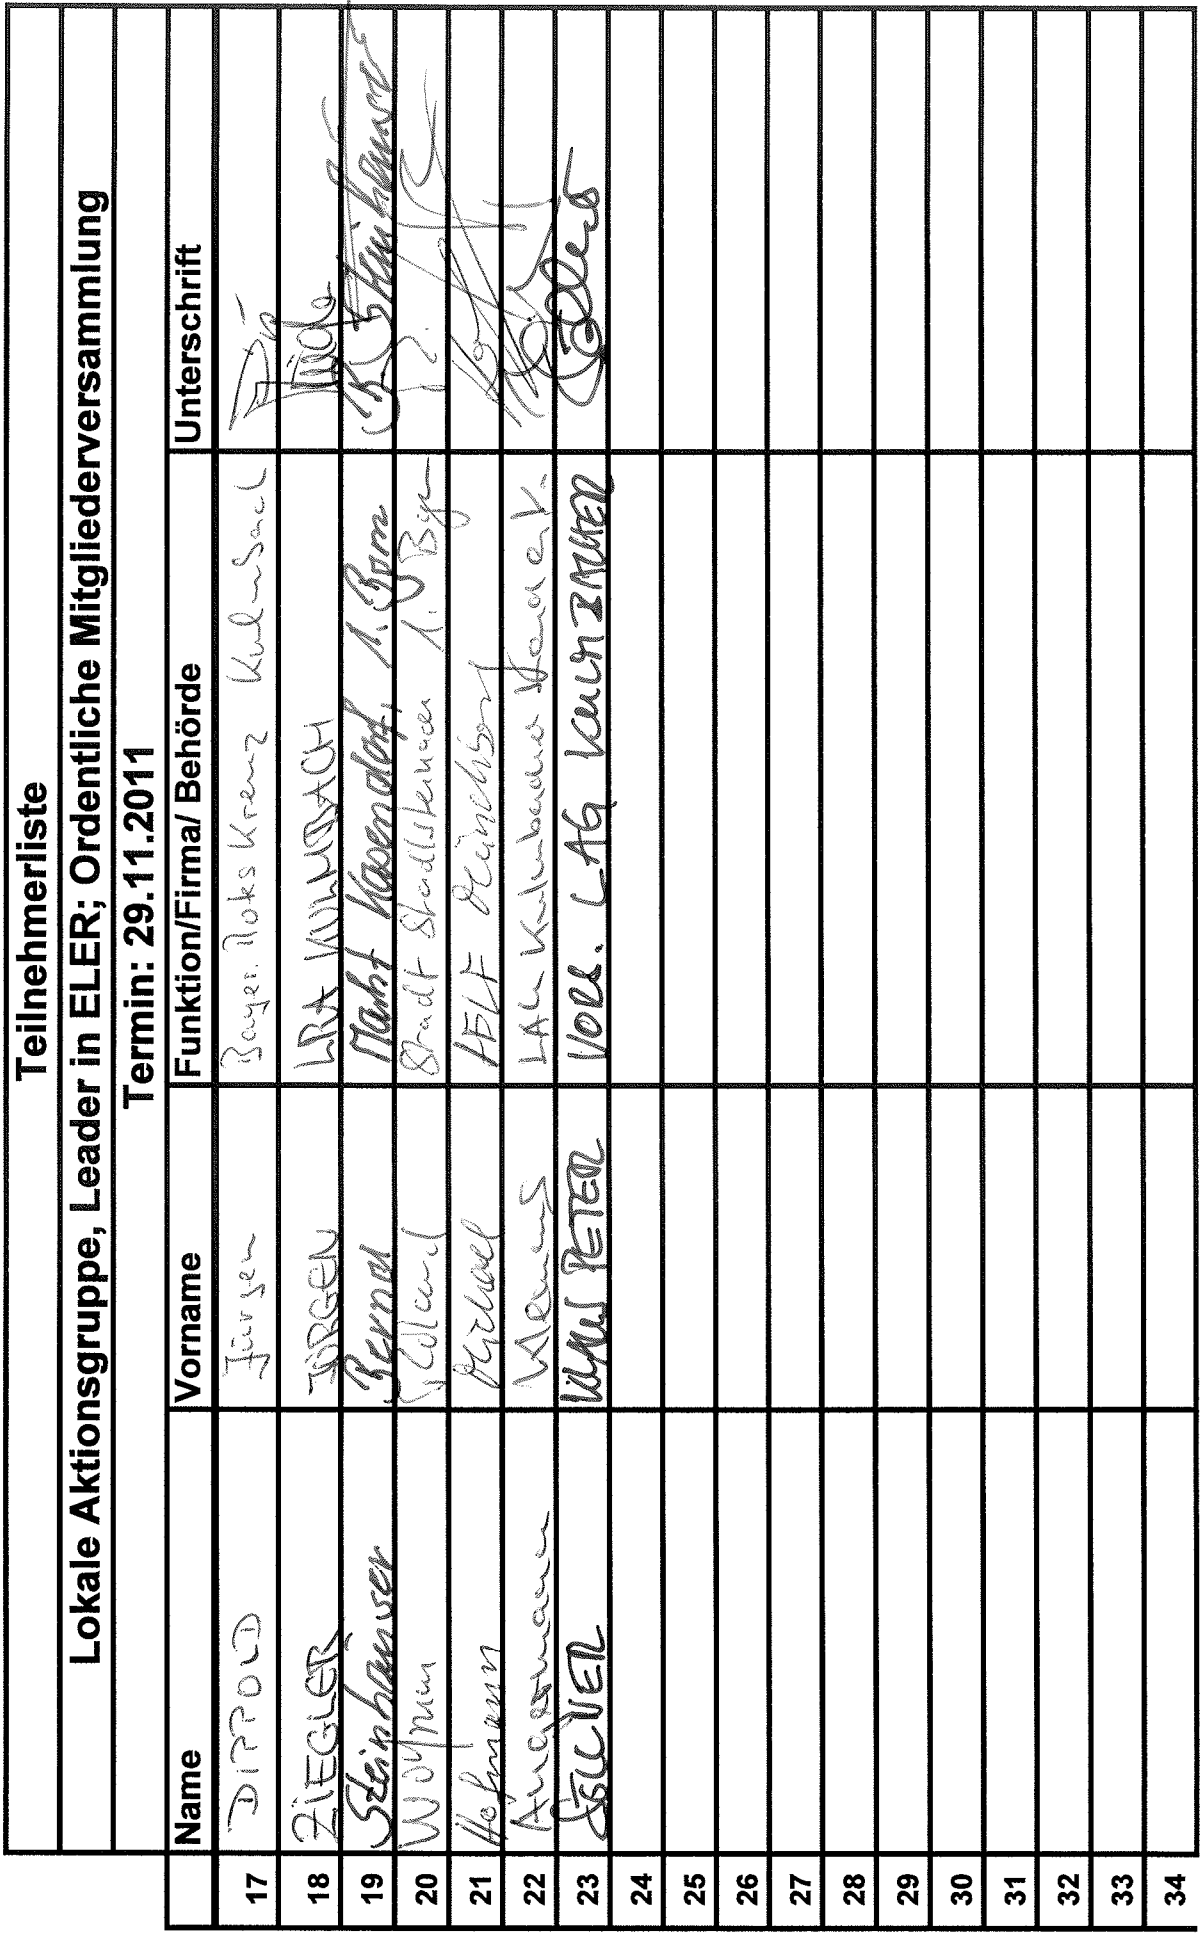 Teilnehmerliste
Lokale Aktionsgruppe, Leader in ELER; Ordentliche Mitgliederversammlung
Termin: 29.11.2011
Name Vorname Funktion/Firma/ Behörde Unterschrift
17 DIPPOLD Jürgen Bayer. Rotes Kreuz Kulmbach
18 ZIEGLER JÜRGEN LRA KULMBACH
19 Steinhäuser Bernd Markt Kasendorf, 1. Bgm B. Steinhäuser
20 Wolfrum Roland Stadt Stadtsteinach 1. Bgm
21 Hofmann Michael AELF Münchberg
22 Angermann Klemens LAG Kulmbacher Land e.V.
23 SÖLLNER KLAUS PETER VORS. LAG KULMBACHER Söllner
24
25
26
27
28
29
30
31
32
33
34